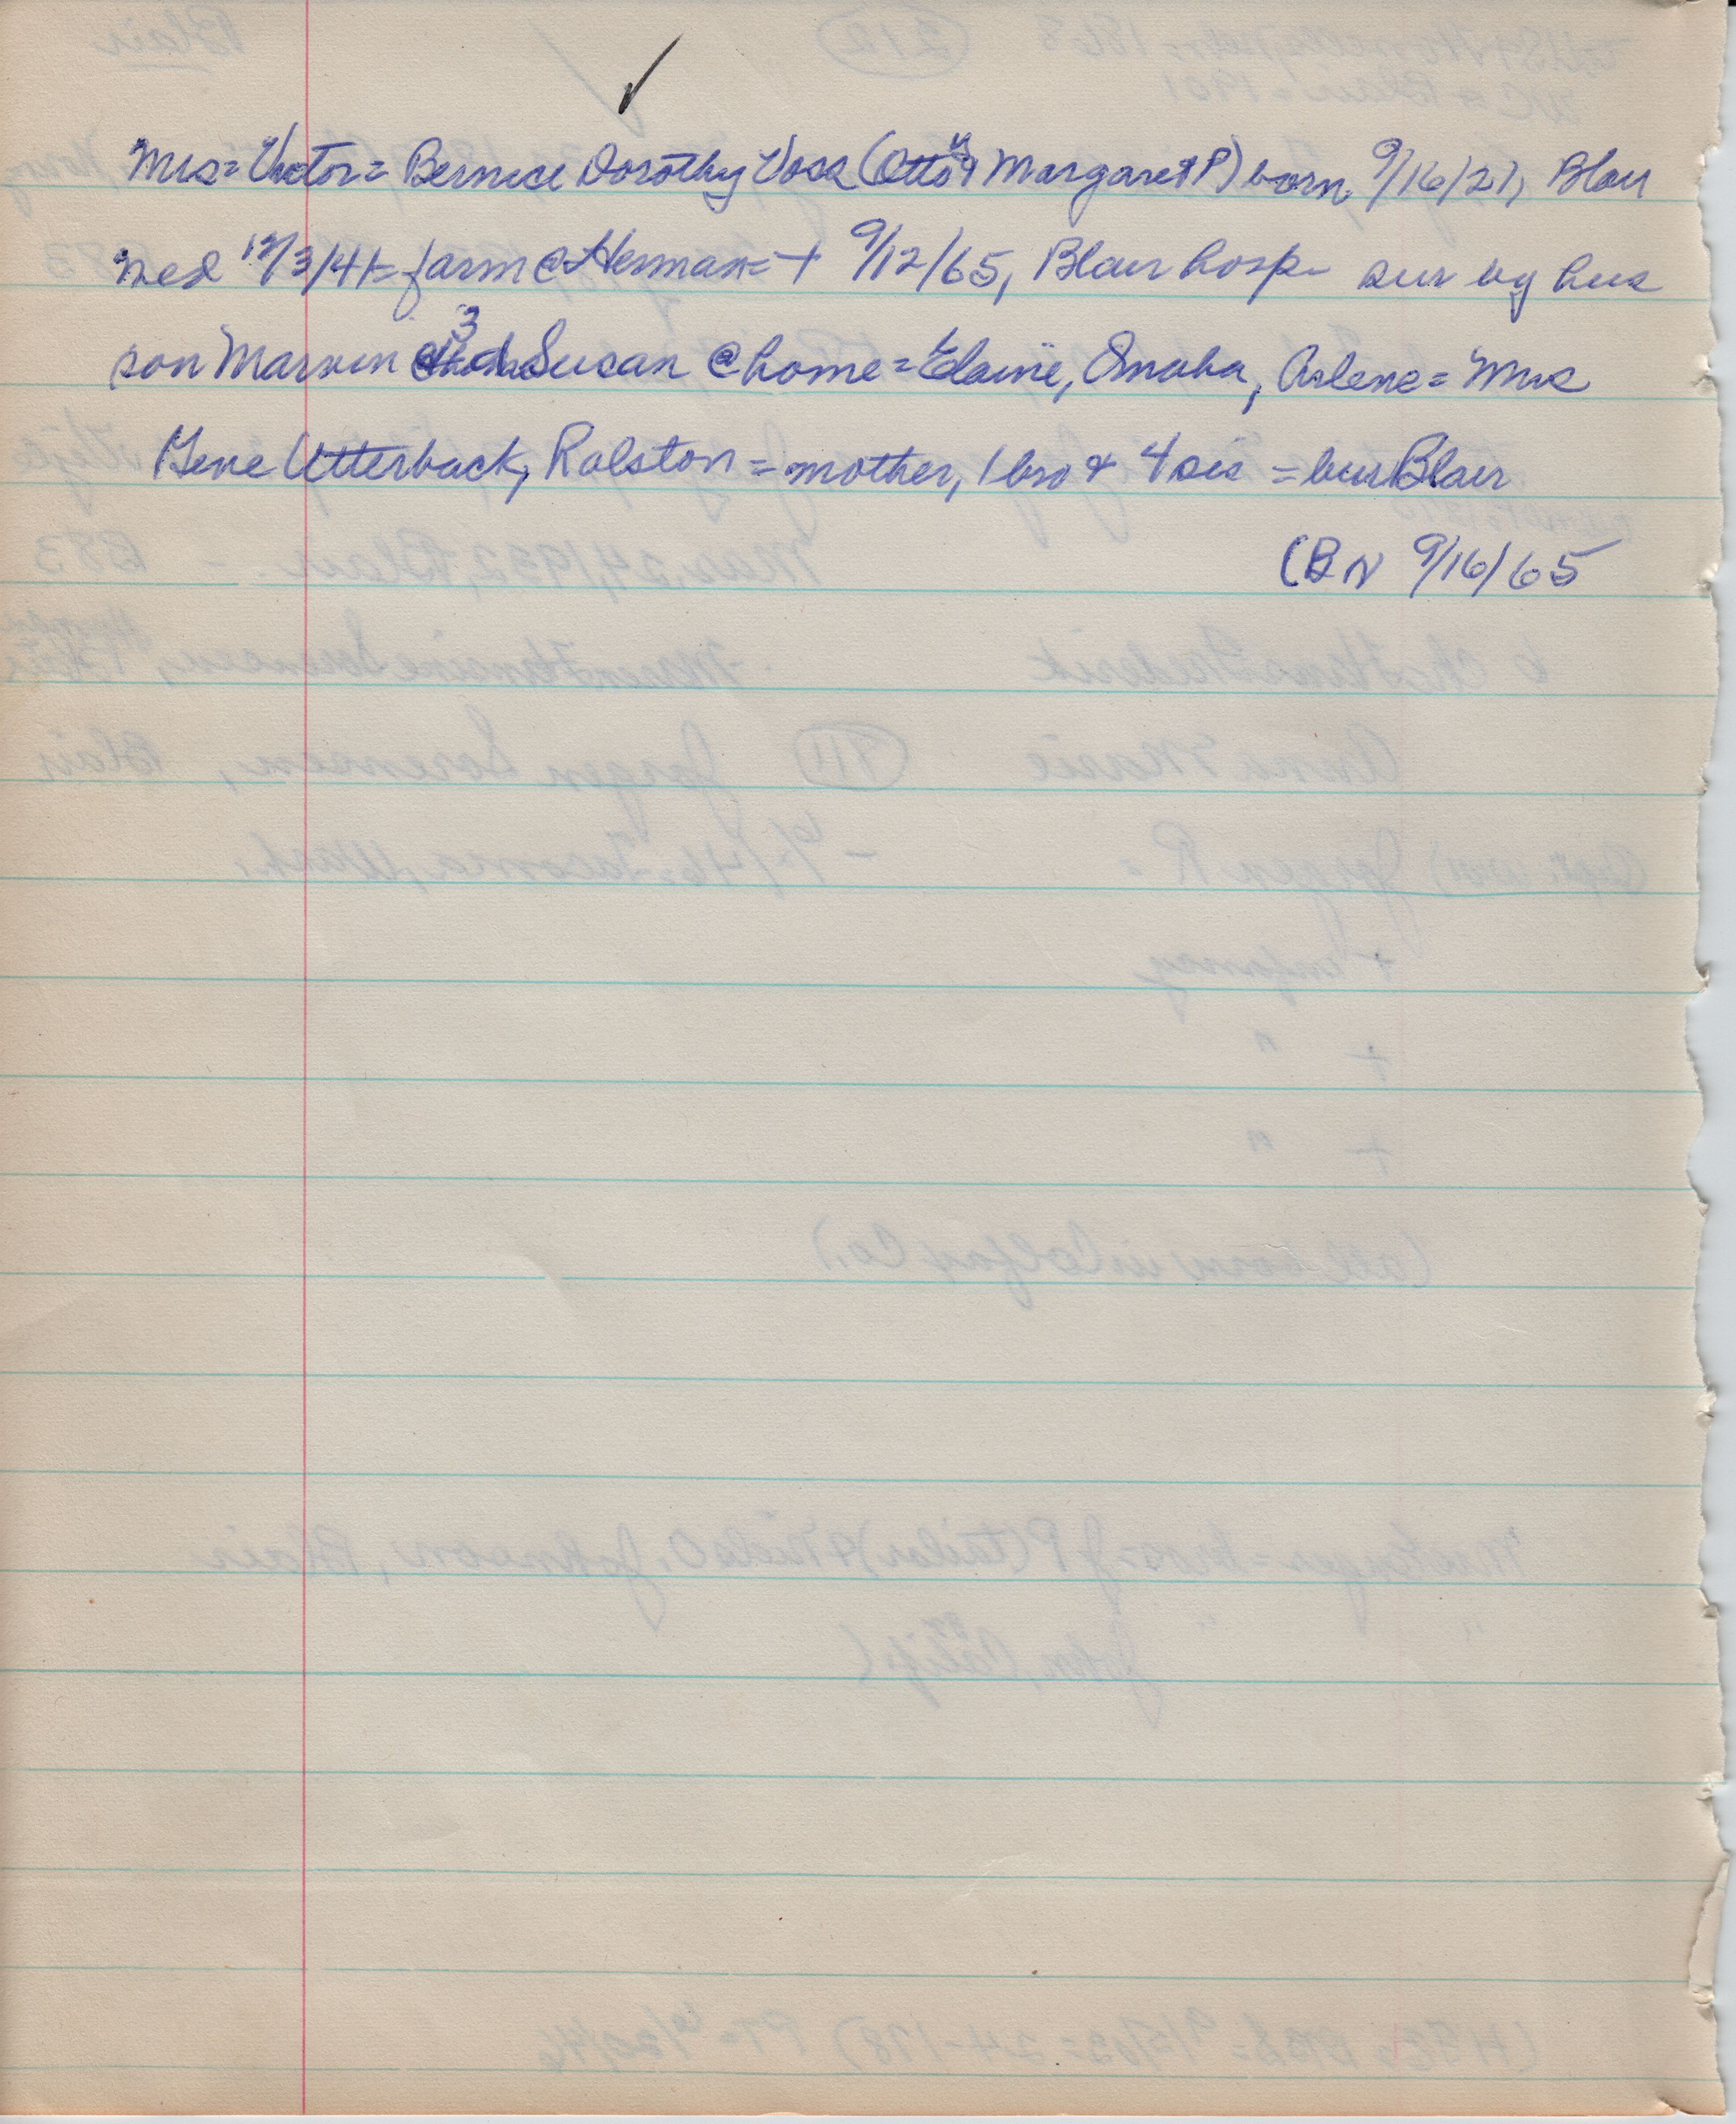 ✓
Mrs = Victor = Bernice Dorothy Voss (Otto & Margaret P) born 9/16/21, Blair
Wed 12/3/41 = farm @ Herman = + 9/12/65, Blair hosp - sur by hus
son Marvin 3 Susan @ home = Elaine, Omaha, Arlene = Mrs
Gene Utterback, Ralston = mother, 1 bro & 4 sis = bur Blair
(BN 9/16/65